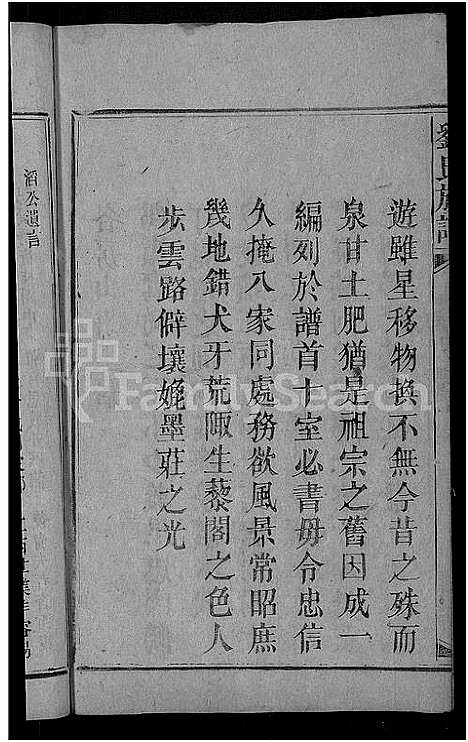 劉氏族譜
遊雖星移物換不無今昔之殊而
泉甘土肥猶是祖宗之舊因成一
編列於譜首十室必書毋令忠信
久掩八家同處務欲風景常昭庶
幾地錯犬牙荒陬生藜閣之色人
步雲路僻壤娩墨莊之光
滔公遺言
FamilySearch